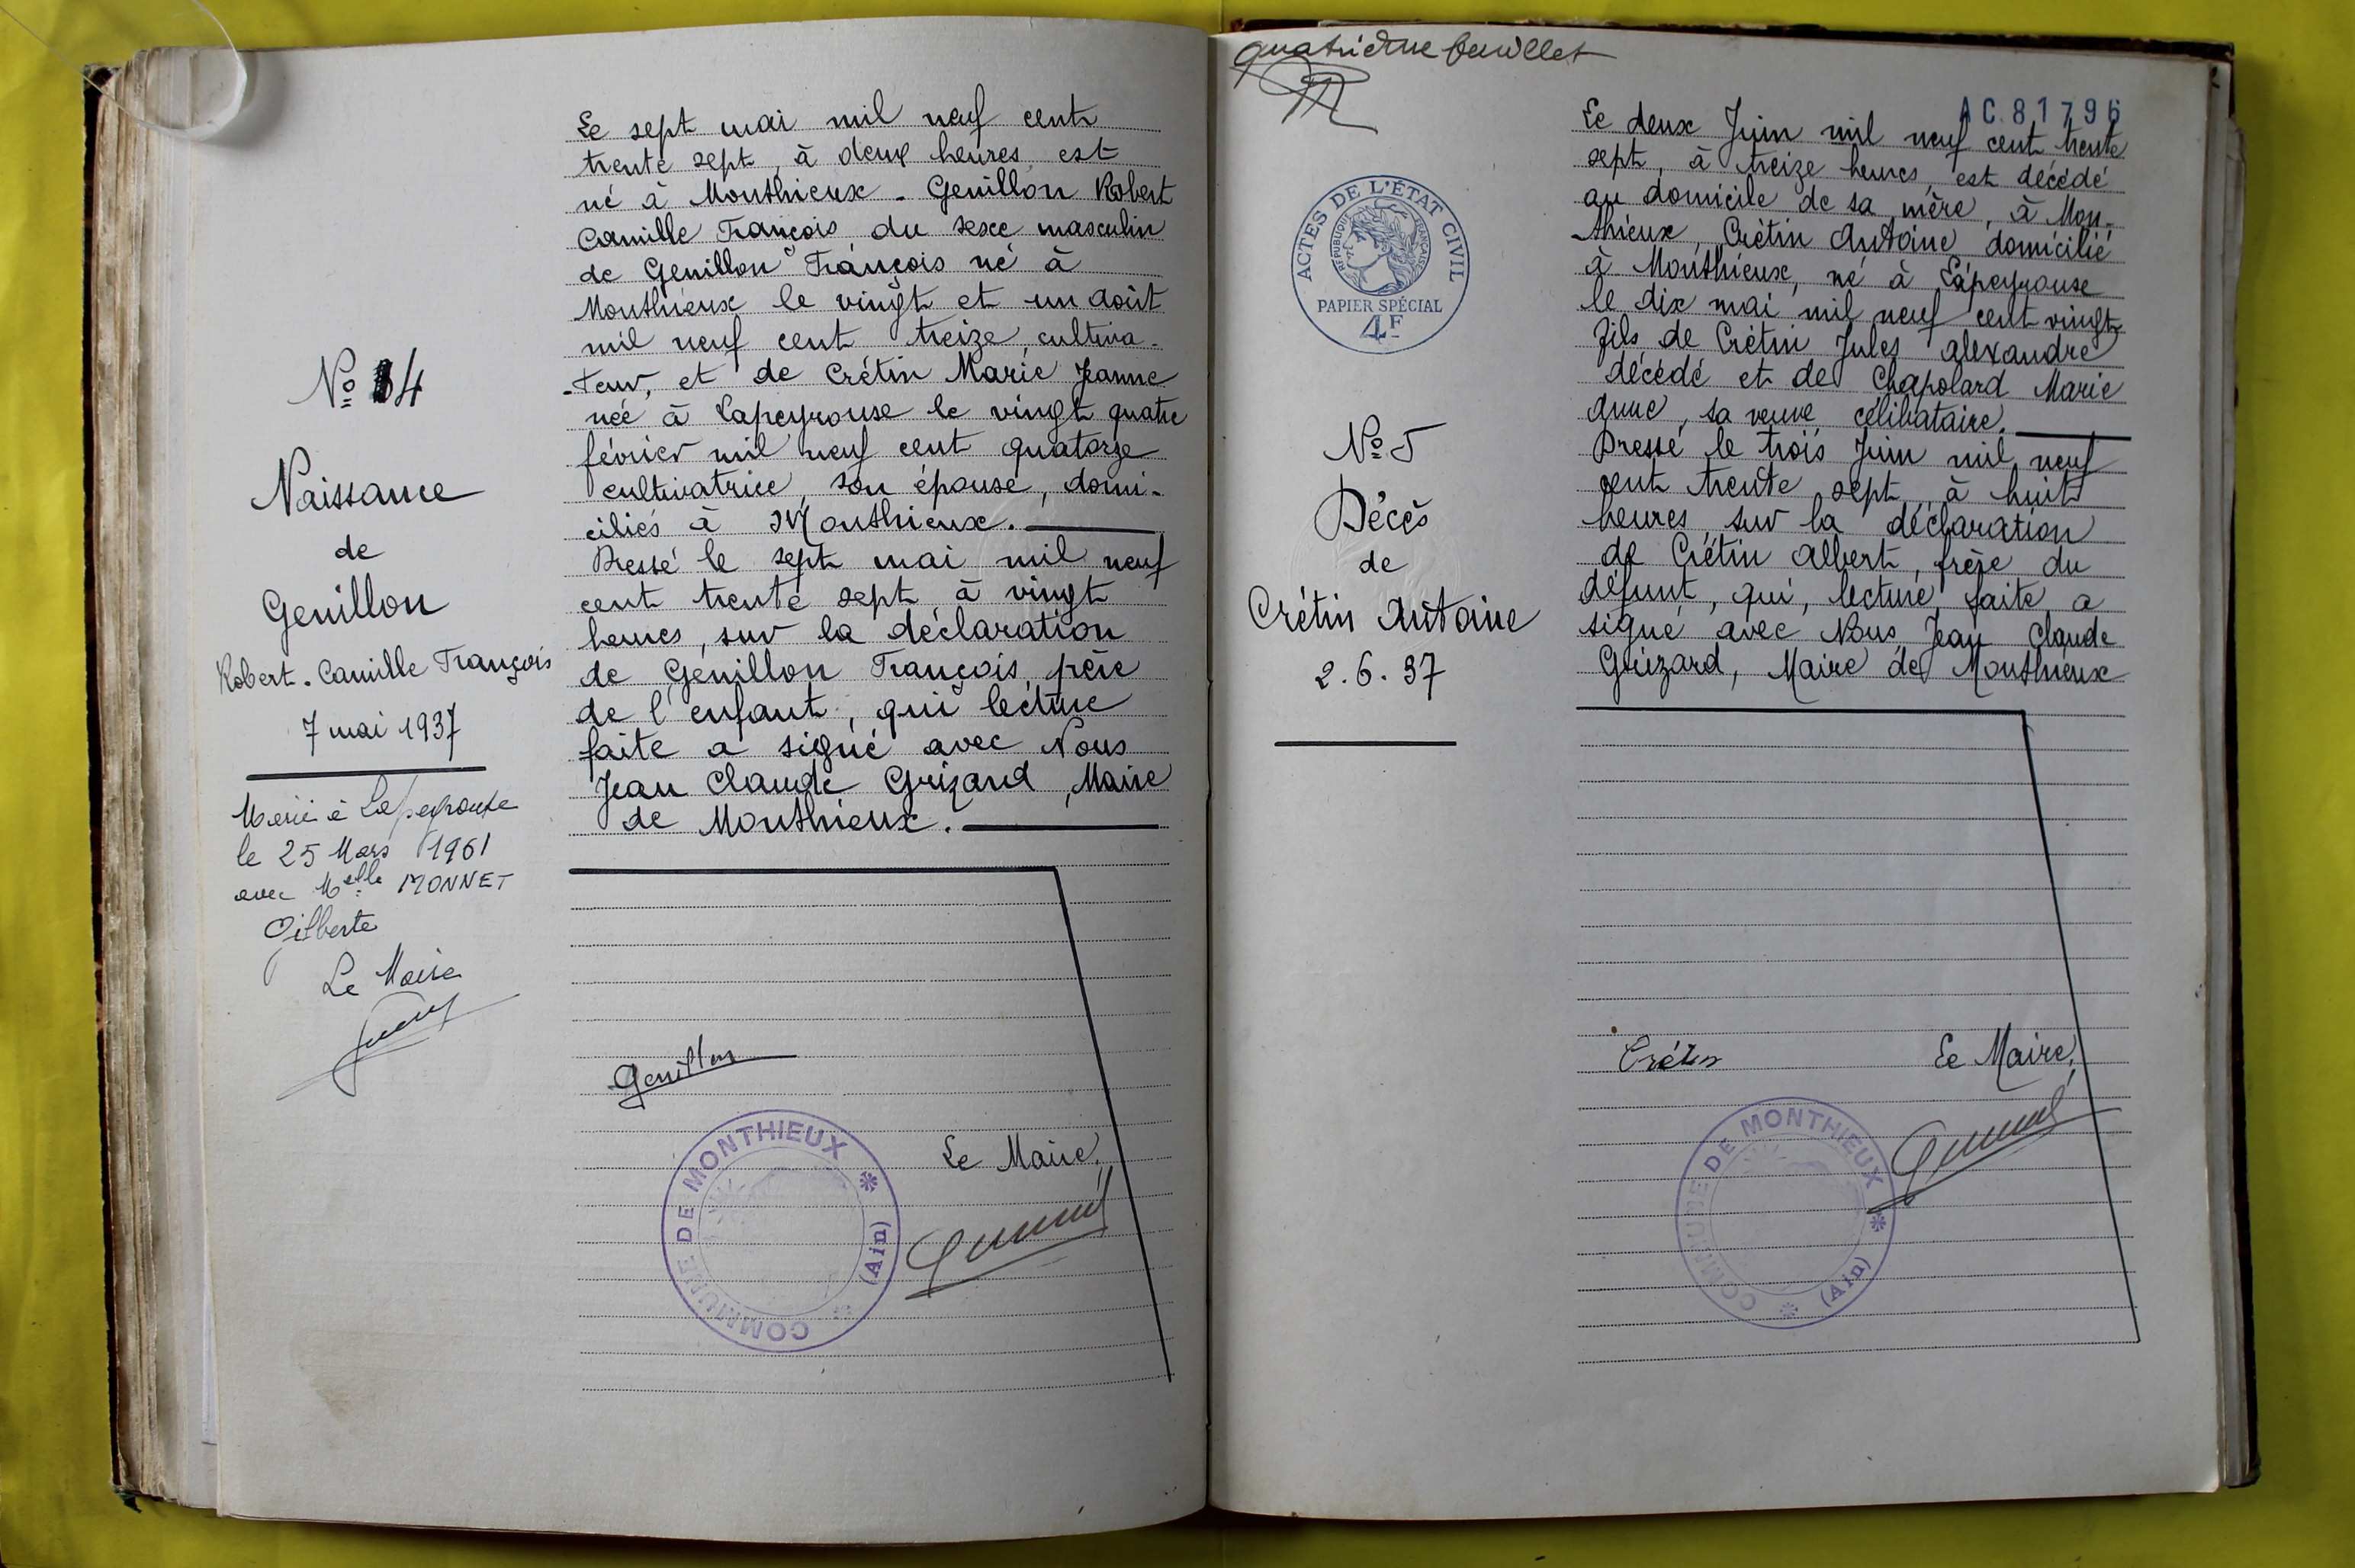 Le sept mai mil neuf cent
trente sept, à deux heures, est
né à Monthieux - Genillon Robert
Camille François, du sexe masculin
de Genillon François né à
Monthieux le vingt et un août
mil neuf cent treize, cultiva-
-teur, et de Crétin Marie Jeanne
née à Lapeyrouse le vingt quatre
février mil neuf cent quatorze
cultivatrice, son épouse, domi-
ciliés à Monthieux.
Dressé le sept mai mil neuf
cent trente sept à vingt
heures, sur la déclaration
de Genillon François, père
de l'enfant, qui lecture
faite a signé avec Nous
Jean Claude Grizard, Maire
de Monthieux.
Genillon
Le Maire,
COMMUNE DE MONTHIEUX
(Ain)
No 4
Naissance
de
Genillon
Robert. Camille François
7 mai 1937
Marié à Lapeyrouse
le 25 Mars 1961
avec Melle MONNET
Gilberte
Le Maire
quatrième feuillet
ACTES DE L'ÉTAT CIVIL
RÉPUBLIQUE FRANÇAISE
PAPIER SPÉCIAL
4F
No 5
Décès
de
Crétin Antoine
2.6.37
AC.81796
Le deux Juin mil neuf cent trente
sept, à treize heures, est décédé
au domicile de sa mère, à Mon-
thieux, Crétin Antoine domicilié
à Monthieux, né à Lapeyrouse
le dix mai mil neuf cent vingt
fils de Crétin Jules Alexandre
décédé et de Chapolard Marie
Anne, sa veuve célibataire.
Dressé le trois Juin mil neuf
cent trente sept, à huit
heures, sur la déclaration
de Crétin Albert, frère du
défunt, qui, lecture faite a
signé avec Nous Jean Claude
Grizard, Maire de Monthieux
Crétin
Le Maire,
COMMUNE DE MONTHIEUX
(Ain)